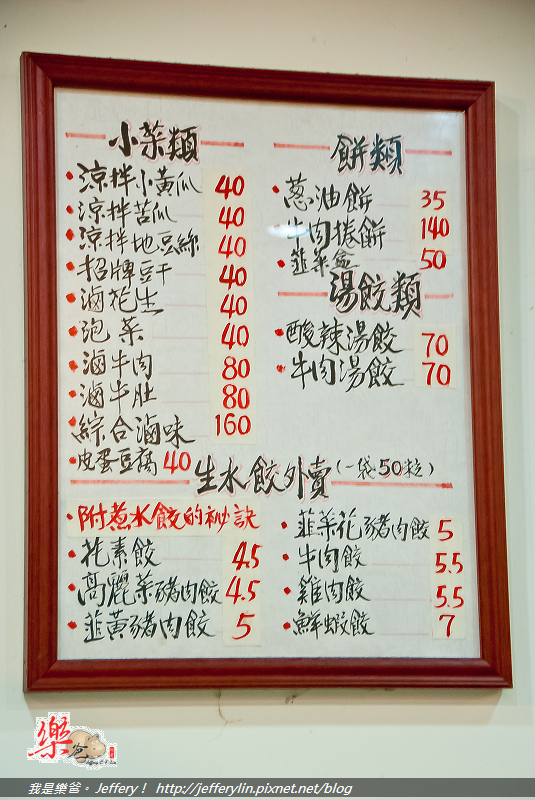 小菜類
涼拌小黃瓜 40
涼拌苦瓜 40
涼拌地豆絲 40
招牌豆干 40
滷花生 40
泡菜 40
滷牛肉 80
滷牛肚 80
綜合滷味 160
皮蛋豆腐 40
餅類
蔥油餅 35
牛肉捲餅 140
韮菜盒 50
湯餃類
酸辣湯餃 70
牛肉湯餃 70
生水餃外賣(一袋50粒)
附煮水餃的秘訣
素餃 4.5
高麗菜豬肉餃 4.5
韮黃豬肉餃 5
韮菜花豬肉餃 5
牛肉餃 5.5
雞肉餃 5.5
鮮蝦餃 7
樂爸
我是樂爸。Jeffery! http://jefferylin.pixnet.net/blog